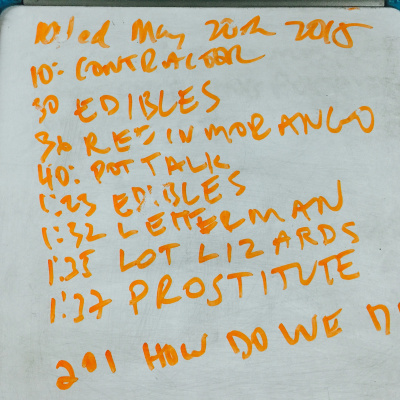 May 20th 2015
10: CONTRACTOR
30 EDIBLES
36 IN MORANGO
40: POT TALK
1:23 EDIBLES
1:32 LETTERMAN
1:35 LOT LIZARDS
1:37 PROSTITUTE
201 HOW DO WE